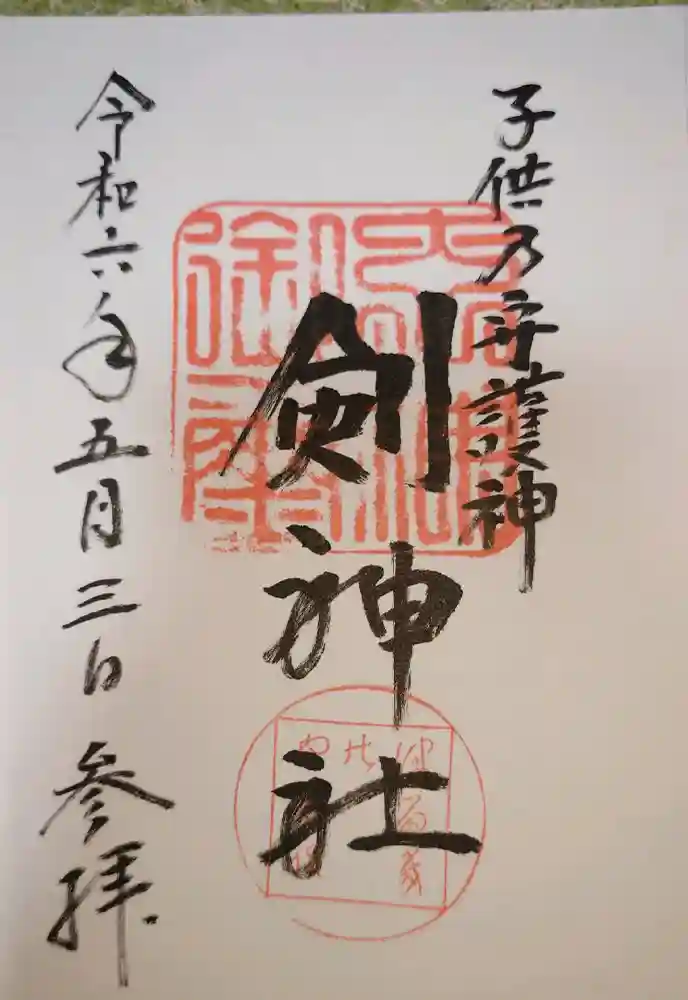 子供乃守護神
剣神社
令和六年五月三日 参拝